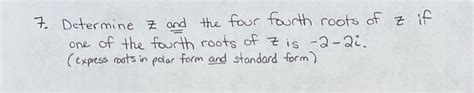 7. Determine z and the four fourth roots of z if
one of the fourth roots of z is -2-2i.
(express roots in polar form and standard form)